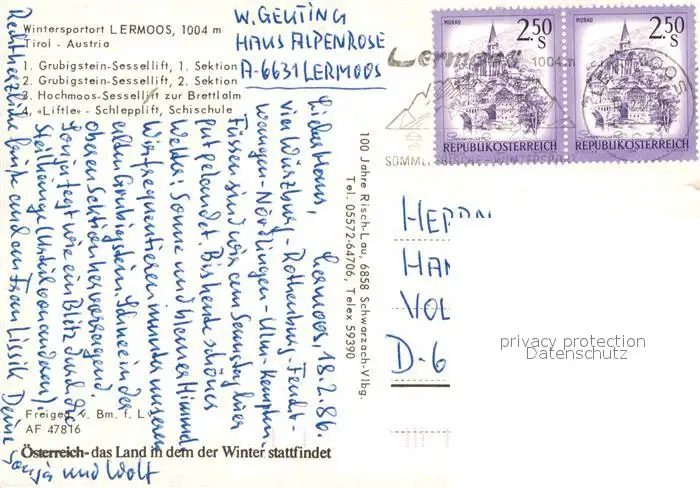 Wintersportort LERMOOS, 1004 m
Tirol - Austria
1. Grubigstein-Sessellift, 1. Sektion
2. Grubigstein-Sessellift, 2. Sektion
3. Hochmoos-Sessellift zur Brettlalm
4. «Liftle» - Schlepplift, Schischule
W. GEUTING
HAUS ALPENROSE
A-6631 LERMOOS
Lermoos, 18.2.86.
Lieber Hans,
via Würzburg - Rothenburg - Feucht-
wangen - Nördlingen - Ulm - Kempten -
Füssen sind wir am Samstag hier
gut gelandet. Bis heute schönes
Wetter: Sonne und blauer Himmel
Wir frequentieren immer unseren
alten Grubigstein. Schnee in der
oberen Sektion hervorragend.
Sonja fegt wie ein Blitz durch die
Steilhänge (Urteil von anderen).
Recht herzliche Grüße auch an Frau Lissik Deine
Sonja und Wolf
Freigeg. v. Bm. f. L
AF 47816
Österreich - das Land in dem der Winter stattfindet
100 Jahre Risch-Lau, 6858 Schwarzach-Vlbg.
Tel. 05572-64706, Telex 59390
MURAU
2.50
S
REPUBLIK ÖSTERREICH
MURAU
2.50
S
REPUBLIK ÖSTERREICH
Lermoos
1004 m
LERMOOS
HERRN
HAN
VOL
D-6
privacy protection
Datenschutz